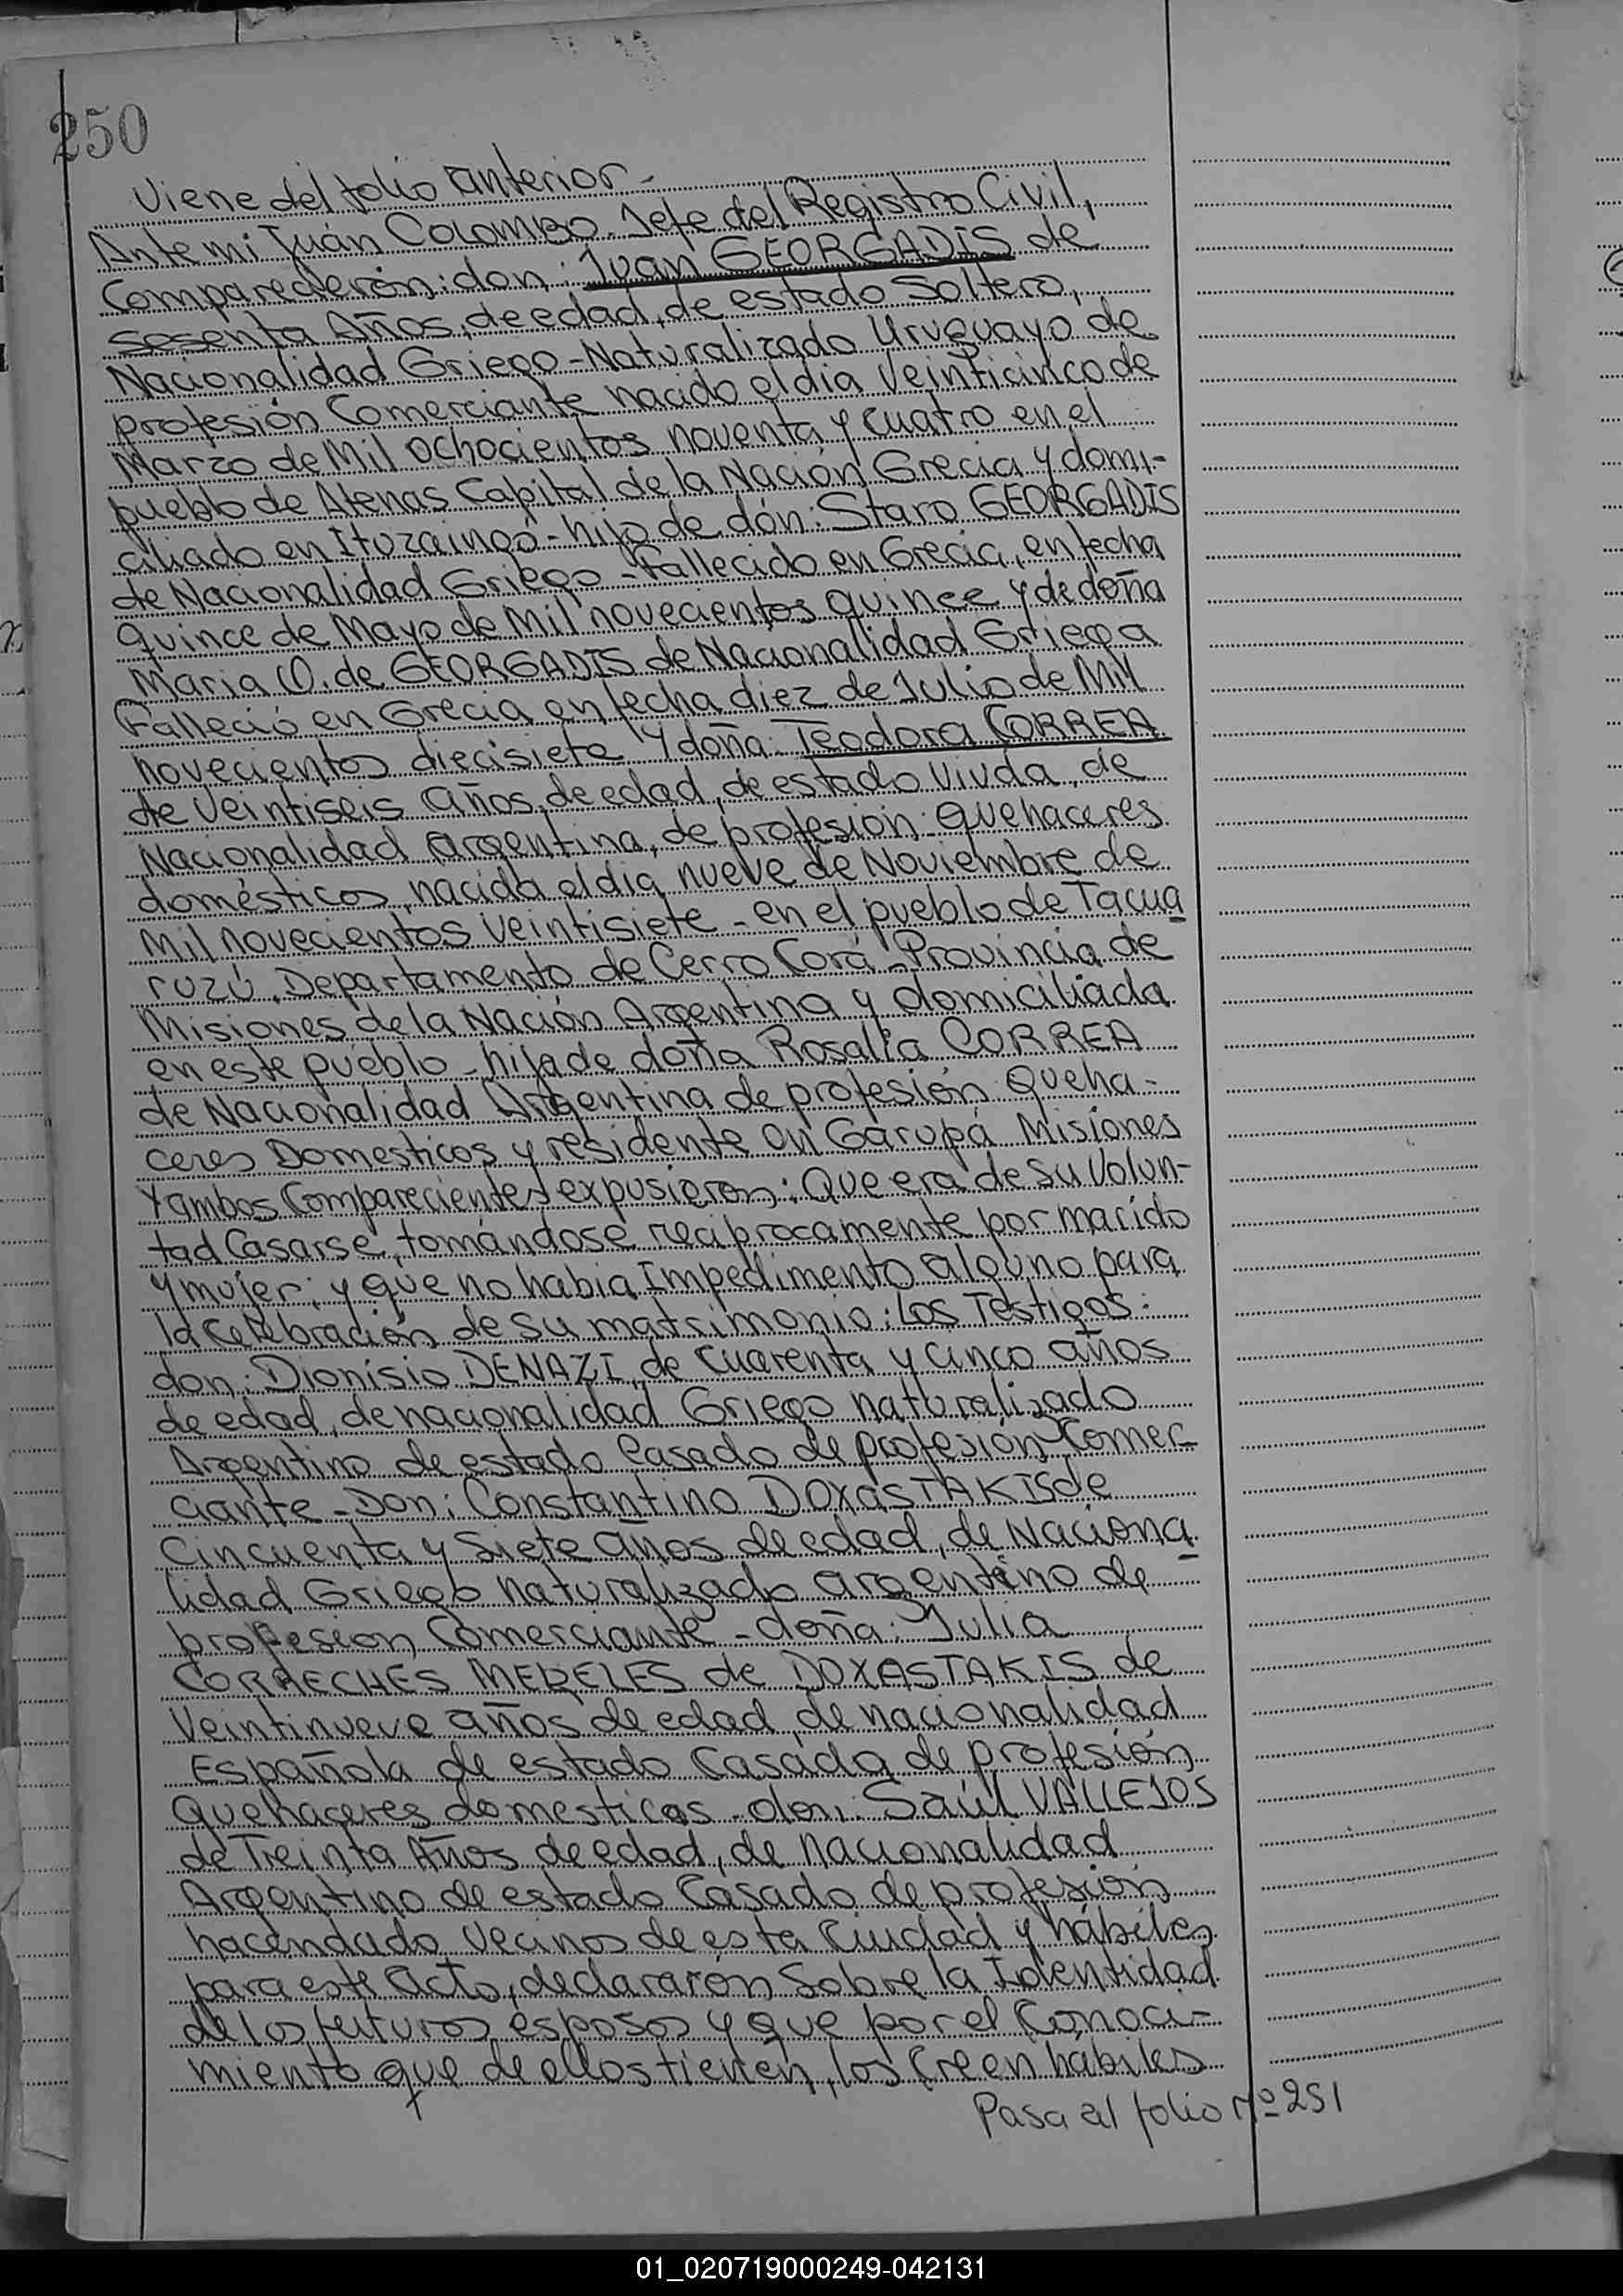 250
Viene del folio anterior-
Ante mi Juán COLOMBO. Jefe del Registro Civil,
Comparecierón: don: Juan GEORGADIS de
Sesenta Años, de edad, de estado Soltero,
Nacionalidad Griego-Naturalizado Uruguayo de
profesión Comerciante nacido el día Veinticinco de
Marzo de Mil ochocientos noventa y cuatro en el
pueblo de Atenas Capital de la Nación Grecia y domi-
ciliado en Ituzaingó-hijo de dón: Staro GEORGADIS
de Nacionalidad Griego-Fallecido en Grecia, en fecha
quince de Mayo de Mil novecientos quince y de doña
Maria O. de GEORGADIS de Nacionalidad Griega
Falleció en Grecia en fecha diez de Julio de Mil
novecientos diecisiete Y doña: Teodora CORREA
de Veintiseis años, de edad, de estado Viuda, de
Nacionalidad argentina, de profesión: quehaceres
domésticos, nacida el dia nueve de Noviembre de
Mil novecientos Veintisiete-en el pueblo de Tacua
ruzú, Departamento de Cerro Corá-Provincia de
Misiones de la Nación Argentina y domiciliada
en este pueblo-hija de doña Rosalía CORREA
de Nacionalidad Argentina de profesión Queha-
ceres Domesticos y residente en Garupá Misiones
Y ambos Comparecientes expusieron: Que era de su Volun-
tad Casarse, tomándose reciprocamente por marido
y mujer; y que no habia Impedimento alguno para
la celebración de su matrimonio: Los Testigos:
don: Dionísio DENAZI, de Cuarenta y cinco años
de edad, de nacionalidad Griego naturalizado
Argentino de estado Casado de profesión Comer-
ciante-Don: Constantino DOXASTAKIS de
Cincuenta y Siete años de edad, de Naciona
lidad Griego naturalizado argentino de
profesion Comerciante-doña: Julia
CORRECHES MERELES de DOXASTAKIS de
Veintinueve años de edad, de nacionalidad
Española de estado Casada de profesión
Quehaceres domesticos-don: Saúl VALLEJOS
de Treinta Años de edad, de nacionalidad
Argentino de estado Casado de profesión
hacendado Vecinos de esta Ciudad y hábiles
para este Acto, declararón Sobre la Identidad
de los futuros esposos y que por el Conoci-
miento que de ellos tienen, los Creen hábiles
Pasa al folio Nº 251
01_020719000249-042131